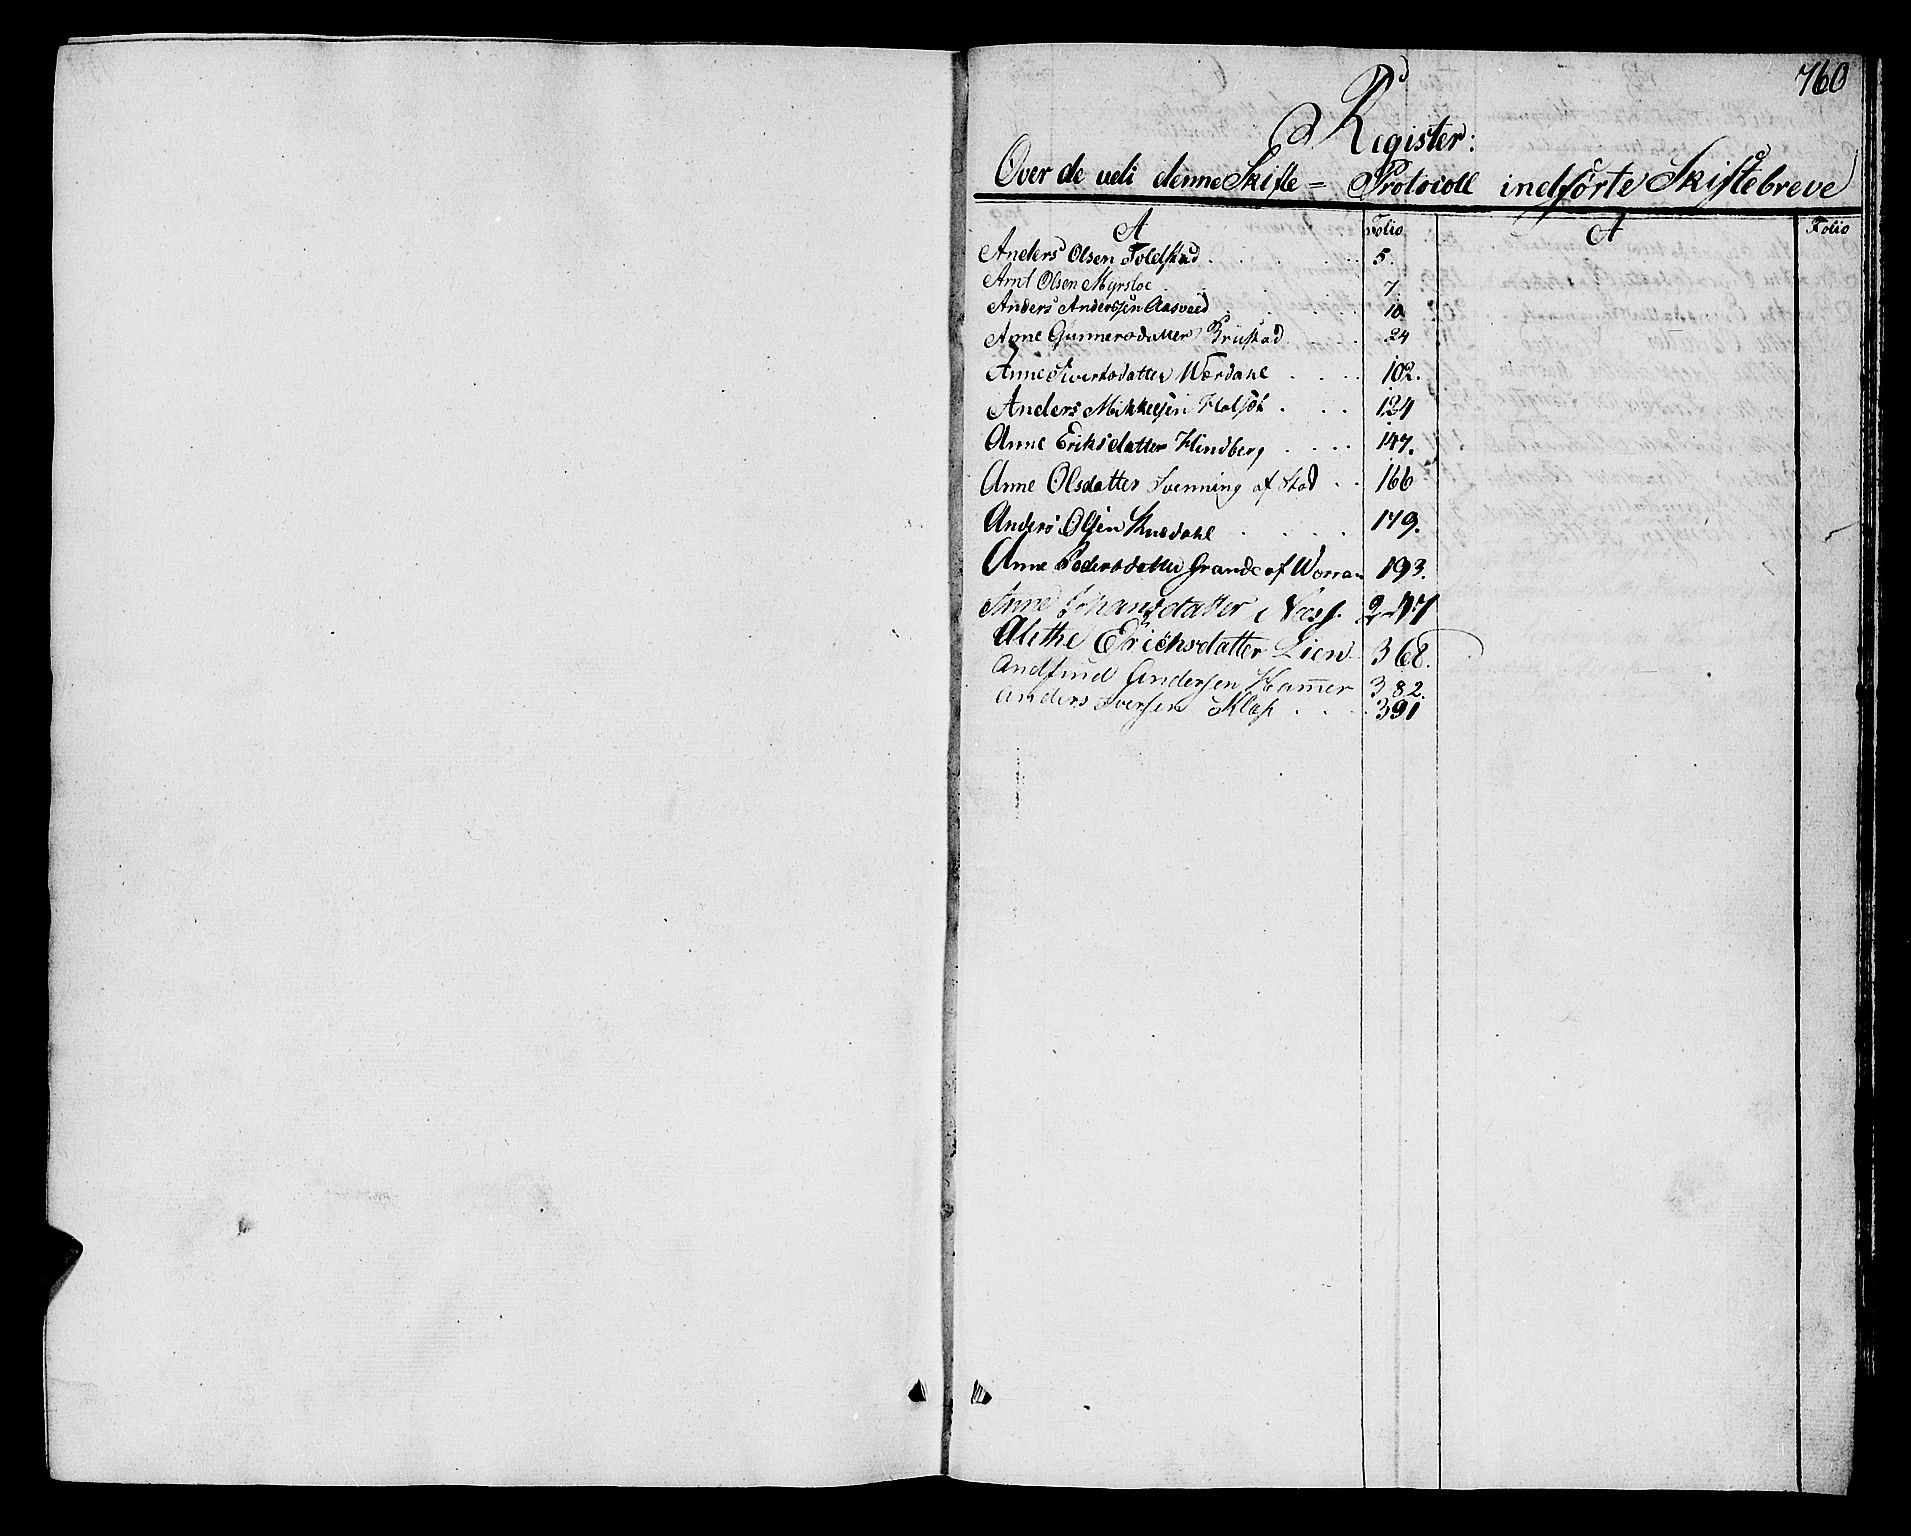 760
Register:
Over de udi denne Skifte = Protocoll indførte Skiftebreve
A Folio A Folio
Anders Olsen Foldstad . . . . 5.
Arnt Olsen Myrsloe . . . . 7.
Anders Anderssen Aasvold . . . . 10
Anne Gunnersdatter Brustad . . . 24
Anne Sivertsdatter Wærdahl . . . . 102.
Anders Mikkelsen . . . 124
Anne Eriksdatter Hindberg . . . . 147.
Anne Olsdatter Svenning af Stod . . 166
Anders Olsen . . . . 179.
Anne Pedersdatter Grande af Worran 193.
Anne Johansdatter Næss. 247
Alethe Erichsdatter Lien 368.
Andfind Andersen Ham̅er 382.
Anders Iversen Klæp . . . . 391